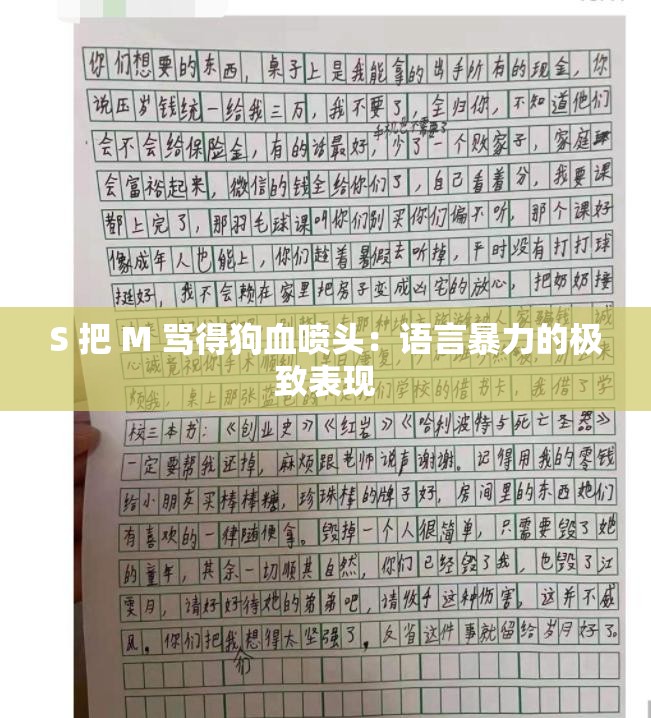 你们想要的东西，桌子上是我能拿的出手所有的现金，你
说压岁钱统一给我三万，我不要了，全归你，不知道他们
手机也不需要了
会不会给保险金，有的话最好，少了一个败家子，家庭
会富裕起来，微信的钱全给你们了，自己看着分，我要课
都上完了，那羽毛球课叫你们别买你们偏不听，那个课好
像成年人也能上，你们趁着暑假去听掉，平时没有打打球
挺好，我不会赖在家里把房子变成凶宅的放心，把奶奶接
S 把 M 骂得狗血喷头：语言暴力的极
致表现
心诚意祝你手术顺利
烦我，桌上那张蓝色的是我们学校的借书卡，我借了学
校三本书：《创业史》《红岩》《哈利波特与死亡圣器》
一定要帮我还掉，麻烦跟老师说声谢谢。记得用我的零钱
给小朋友买棒棒糖，珍珠棒的牌子好，房间里的东西她们
有喜欢的一律随便拿。毁掉一个人很简单，只需要毁了她
的童年，其余一切顺其自然，你们已经毁了我，也毁了江
雯月，请好好待她的弟弟吧，请收手这种伤害，这并不威
风。你们把我们想得太坚强了，反省这件事就留给岁月好了。